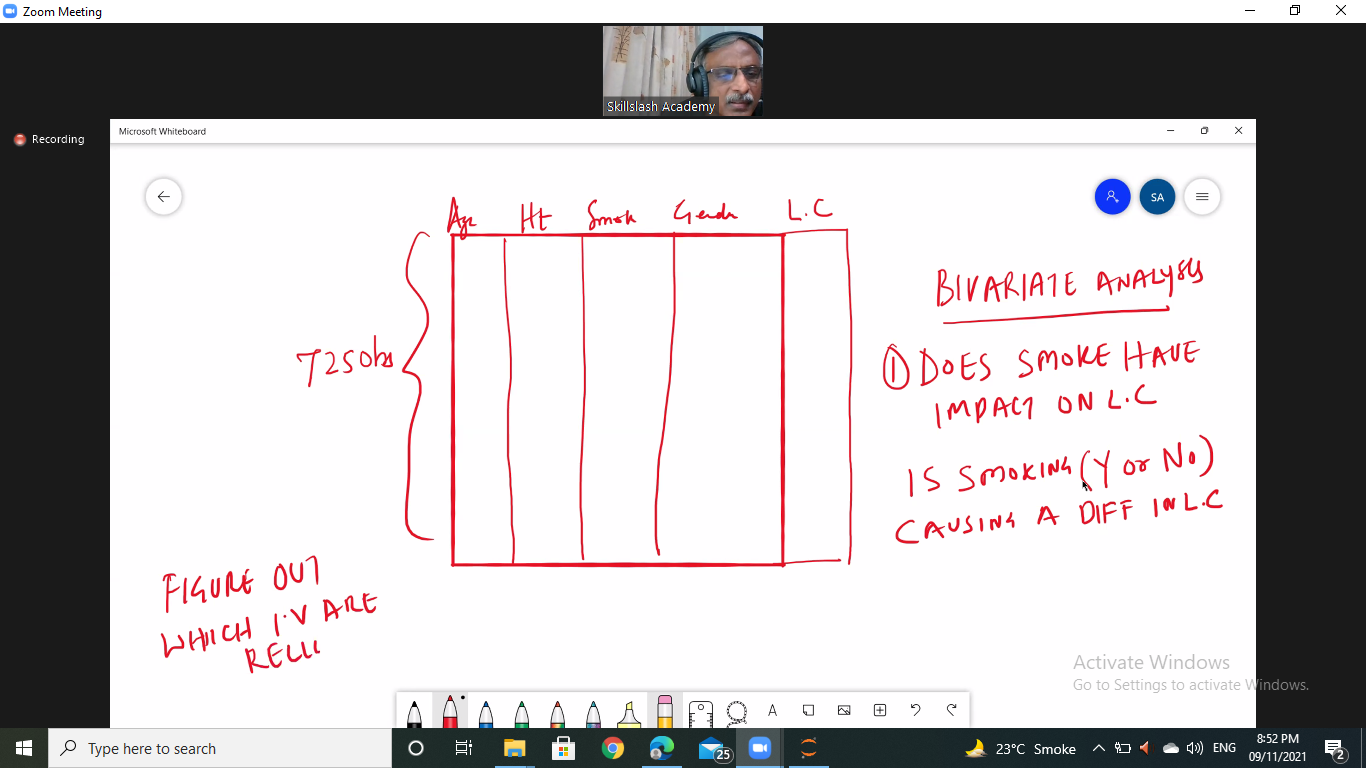 Zoom Meeting
Skillslash Academy
Recording
Microsoft Whiteboard
SA
Age Ht Smok Gende L.C
725 Obs
BIVARIATE ANALYSIS
① DOES SMOKE HAVE
IMPACT ON L.C
IS SMOKING (Y or No)
CAUSING A DIFF IN L.C
FIGURE OUT
WHICH I.V ARE
Activate Windows
Go to Settings to activate Windows.
A
Type here to search
25
23°C Smoke
ENG
8:52 PM
09/11/2021
2